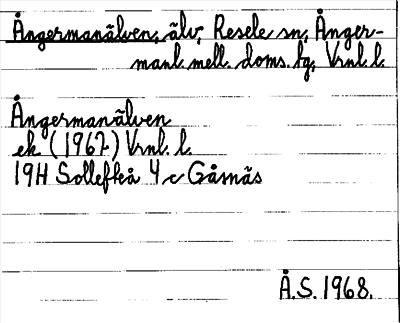 Ångermanälven, älv, Resele sn, Ånger-
manl. mell. doms. fg, Vrnl. l.
Ångermanälven
ek (1967) Vrnl. l.
19H Sollefteå 4 c Gåsnäs
Å.S. 1968.